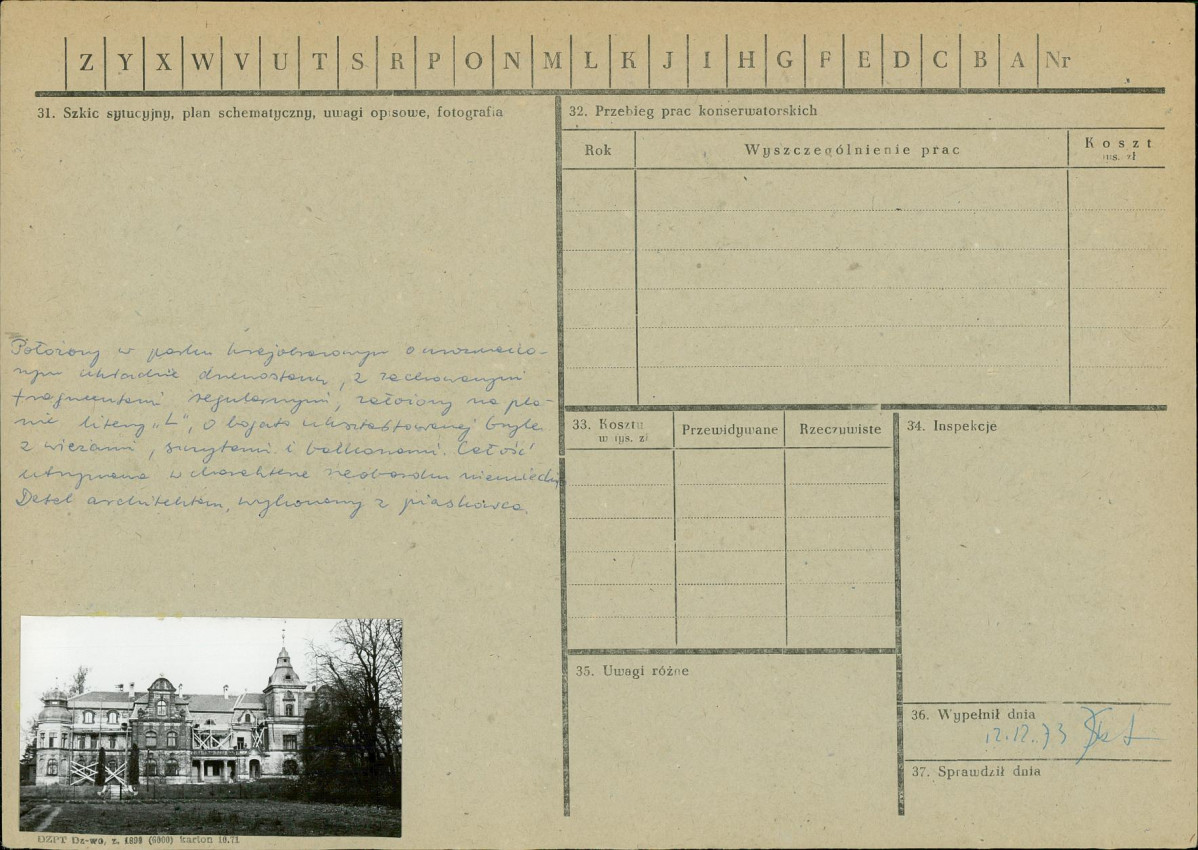 Z Y X W V U T S R P O N M L K J I H G F E D C B A Nr
31. Szkic sytucyjny, plan schematyczny, uwagi opisowe, fotografia
Położony w parku krajobrazowym o urozmaico-
nym układzie drzewostanu, z zachowanymi
fragmentami regularnymi, założony na pla-
nie litery "L", o bogato ukształtowanej bryle
z wieżami, szczytami i balkonami. Całość
utrzymana w charakterze neobaroku
Detal architekton. wykonany z piaskowca.
DZPT Dz-wo, z. 1899 (6000) karton 10.71
32. Przebieg prac konserwatorskich
Rok
Wyszczególnienie prac
Koszt
tys. zł
33. Kosztu
w tys. zł
Przewidywane
Rzeczywiste
34. Inspekcje
35. Uwagi różne
36. Wypełnił dnia
12.12.73
37. Sprawdził dnia